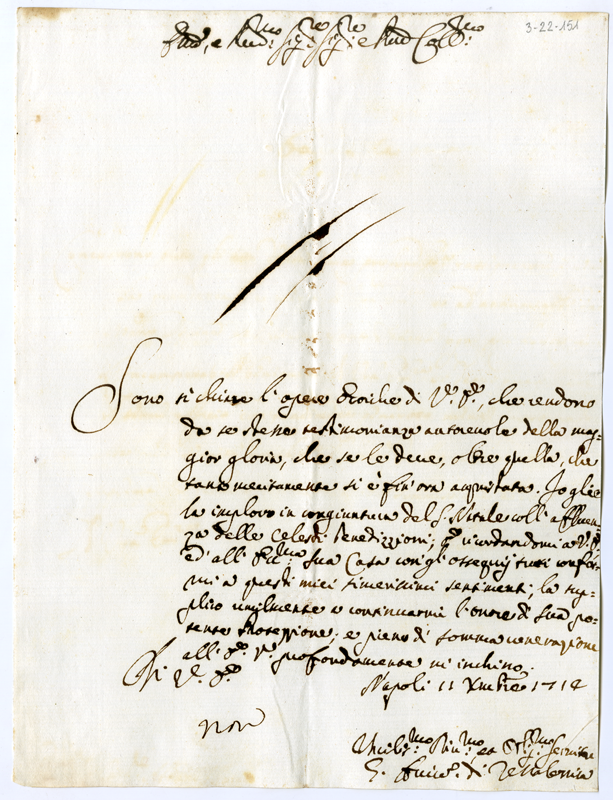 3-22-151
Em:, e Rev:mo Sig:re Sig:re e Pad:
Sono sì chiare l'opere eroiche di V.ª E.ª, che rendono
da se stesse testimonianza autorevole della mag=
gior gloria, che se le deve, oltre quella, che
tanto meritamente si è fin'ora acquistata. Io glie
la imploro in congiuntura del S. Natale coll'affluen=
za delle Celesti benedizzioni; e ricordandomi a V.ª E.ª
ed all' Ecc.ma sua Casa con gl'ossequij tutti confor=
mi a questi miei sentimenti; la sup=
plico umilmente a continuarmi l'onore di sua po=
tente Protezzione; e pieno di somma venerazione
all' E.ª V.ª profondamente m'inchino.
Di V.ª E.ª
Napoli 11 Xmbre 1714
Umiliss:mo Div:mo ed Obl:mo Servitore
di